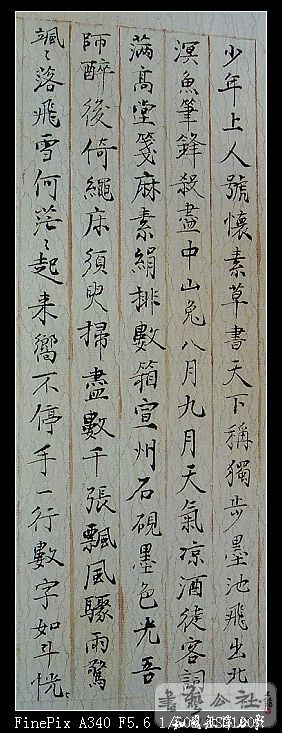 少年上人號懷素草書天下稱獨步墨池飛出北
溟魚筆鋒殺盡中山兔八月九月天氣涼酒徒客詞
滿高堂箋麻素絹排數箱宣州石硯墨色光吾
師醉後倚繩床須臾掃盡數千張飄風驟雨驚
颯〻落飛雪何茫〻起来嚮不停手一行數字如斗恍〻
書藝公社
FinePix A340 F5.6